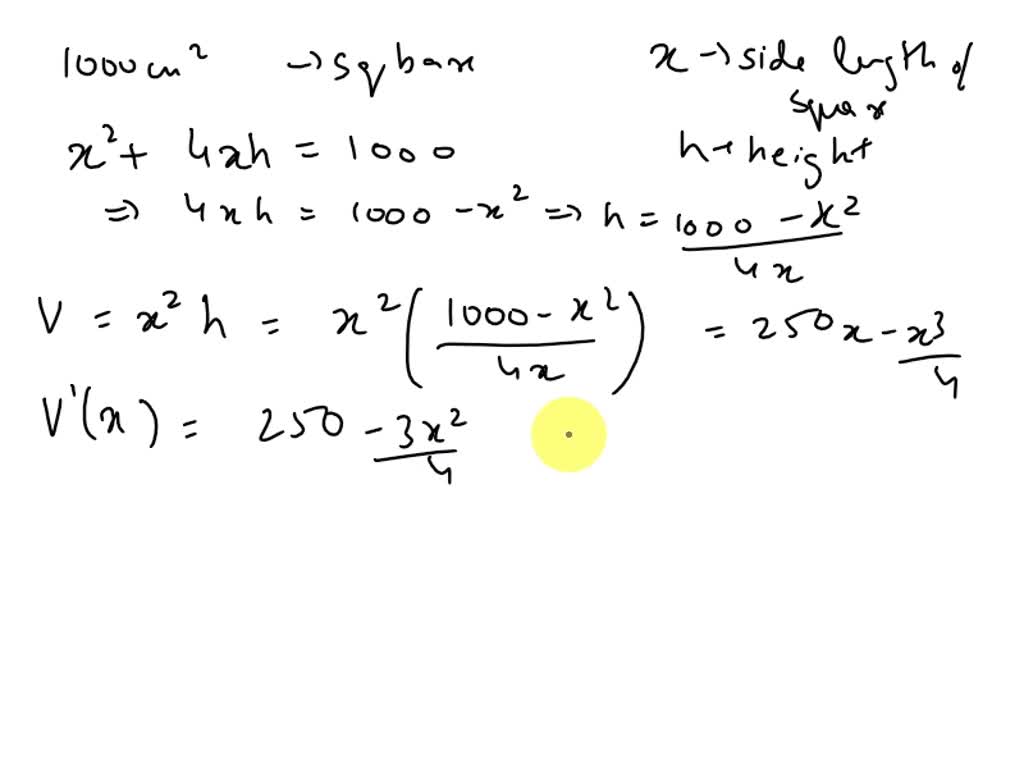 1000cm² → sq base
x → side length of square
x² + 4xh = 1000
h → height
⇒ 4xh = 1000 - x² ⇒ h = (1000 - x²)/4x
V = x²h = x²((1000 - x²)/4x) = 250x - x³/4
V'(x) = 250 - 3x²/4